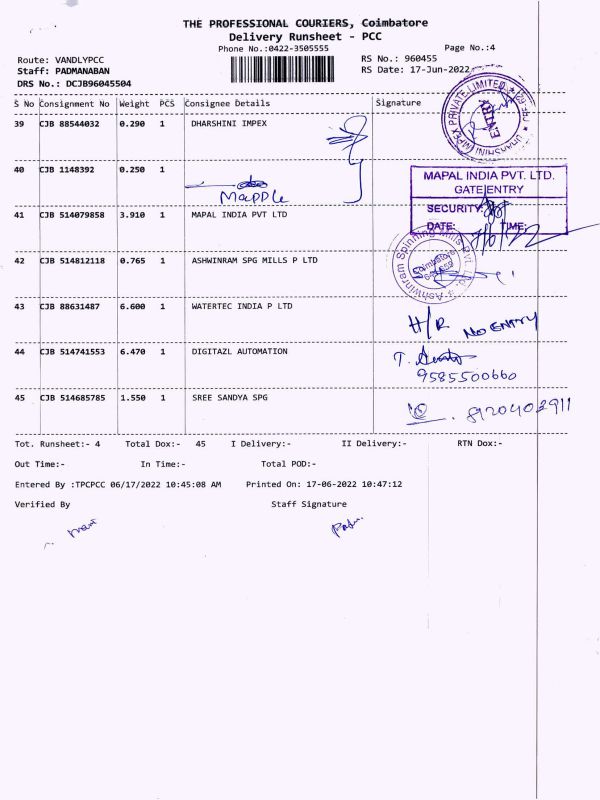 THE PROFESSIONAL COURIERS, Coimbatore
Delivery Runsheet - PCC
Phone No.:0422-3505555 Page No.:4
Route: VANDLYPCC RS No.: 960455
Staff: PADMANABAN RS Date: 17-Jun-2022
DRS No.: DCJB96045504
S No Consignment No Weight PCS Consignee Details Signature
39 CJB 88544032 0.290 1 DHARSHINI IMPEX
IMPEX PRIVATE LIMITED
40 CJB 1148392 0.250 1
Mapple
MAPAL INDIA PVT. LTD.
GATE ENTRY
SECURITY:
DATE: TIME:
41 CJB 514079858 3.910 1 MAPAL INDIA PVT LTD
42 CJB 514812118 0.765 1 ASHWINRAM SPG MILLS P LTD
Ashwinram Spinning Mills Pvt. Ltd.
Coimbatore
43 CJB 88631487 6.600 1 WATERTEC INDIA P LTD
H/R NO ENTRY
44 CJB 514741553 6.470 1 DIGITAZL AUTOMATION
9585500660
45 CJB 514685785 1.550 1 SREE SANDYA SPG
Tot. Runsheet:- 4 Total Dox:- 45 I Delivery:- II Delivery:- RTN Dox:-
Out Time:- In Time:- Total POD:-
Entered By :TPCPCC 06/17/2022 10:45:08 AM Printed On: 17-06-2022 10:47:12
Verified By Staff Signature